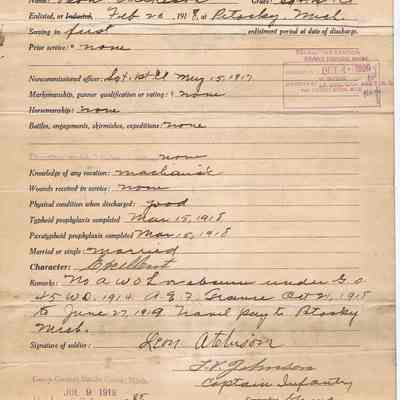 Name:
Grade:
Enlisted, or Inducted, Feb 26, 1918, at Petosky, Mich.
Serving in first enlistment period at date of discharge.
Prior service: none
Noncommissioned officer: Sgt. 1st Cl May 15, 1917
Marksmanship, gunner qualification or rating: none
Horsemanship: none
Battles, engagements, skirmishes, expeditions: none
none
Knowledge of any vocation: machanist
Wounds received in service: none
Physical condition when discharged: good
Typhoid prophylaxis completed Mar 15, 1918
Paratyphoid prophylaxis completed Mar 15, 1918
Married or single: married
Character: Excellent
Remarks: No A W O L or absence under G.O.
45 W.D. 1914. A.E.F. France Oct 21, 1918
to June 27, 1919 Travel pay to Petosky
Mich.
Signature of soldier: Leon Atchison
Johnson
Captain Infantry
JUL 9 1919